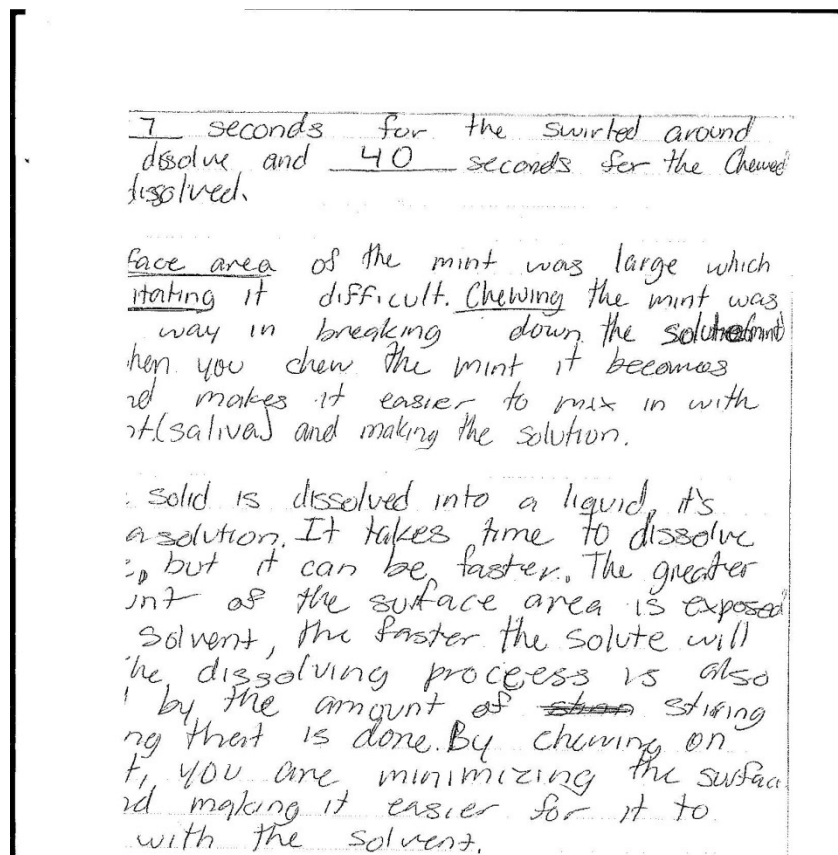 7 seconds for the swirled around
dissolve and 40 seconds for the Chewed
dissolved.
face area of the mint was large which
itating it difficult. Chewing the mint was
way in breaking down the
hen you chew the mint it becomes
nd makes it easier to mix in with
nt (saliva) and making the solution.
solid is dissolved into a liquid, it's
a solution. It takes time to dissolve
, but it can be faster. The greater
unt of the surface area is exposed
solvent, the faster the solute will
he dissolving proceess is also
by the amount of stiring
ng that is done. By chewing on
t, you are minimizing the surfac
nd making it easier for it to
with the solvent.